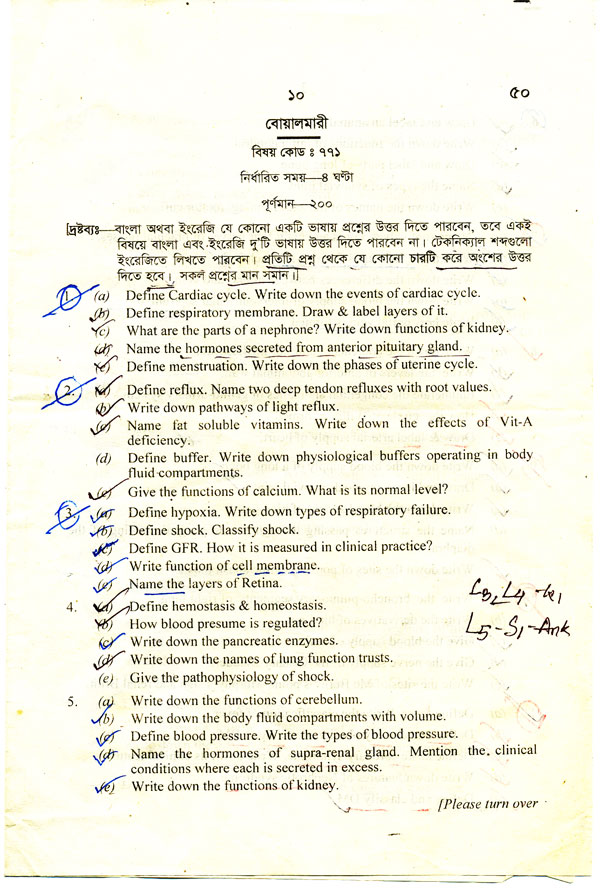 ১০
৫০
বোয়ালমারী
বিষয় কোড : ৭৭১
নির্ধারিত সময়—৪ ঘণ্টা
পূর্ণমান—২০০
[দ্রষ্টব্যঃ—বাংলা অথবা ইংরেজি যে কোনো একটি ভাষায় প্রশ্নের উত্তর দিতে পারবেন, তবে একই
বিষয়ে বাংলা এবং ইংরেজি দু'টি ভাষায় উত্তর দিতে পারবেন না। টেকনিক্যাল শব্দগুলো
ইংরেজিতে লিখতে পারবেন। প্রতিটি প্রশ্ন থেকে যে কোনো চারটি করে অংশের উত্তর
দিতে হবে। সকল প্রশ্নের মান সমান।]
1. (a) Define Cardiac cycle. Write down the events of cardiac cycle.
(b) Define respiratory membrane. Draw & label layers of it.
(c) What are the parts of a nephrone? Write down functions of kidney.
(d) Name the hormones secreted from anterior pituitary gland.
(e) Define menstruation. Write down the phases of uterine cycle.
2. (a) Define reflux. Name two deep tendon refluxes with root values.
(b) Write down pathways of light reflux.
(c) Name fat soluble vitamins. Write down the effects of Vit-A
deficiency.
(d) Define buffer. Write down physiological buffers operating in body
fluid compartments.
(e) Give the functions of calcium. What is its normal level?
3. (a) Define hypoxia. Write down types of respiratory failure.
(b) Define shock. Classify shock.
(c) Define GFR. How it is measured in clinical practice?
(d) Write function of cell membrane.
(e) Name the layers of Retina.
L3, L4 -
L5 - S1 - Ank
4. (a) Define hemostasis & homeostasis.
(b) How blood presume is regulated?
(c) Write down the pancreatic enzymes.
(d) Write down the names of lung function trusts.
(e) Give the pathophysiology of shock.
5. (a) Write down the functions of cerebellum.
(b) Write down the body fluid compartments with volume.
(c) Define blood pressure. Write the types of blood pressure.
(d) Name the hormones of supra-renal gland. Mention the clinical
conditions where each is secreted in excess.
(e) Write down the functions of kidney.
[Please turn over